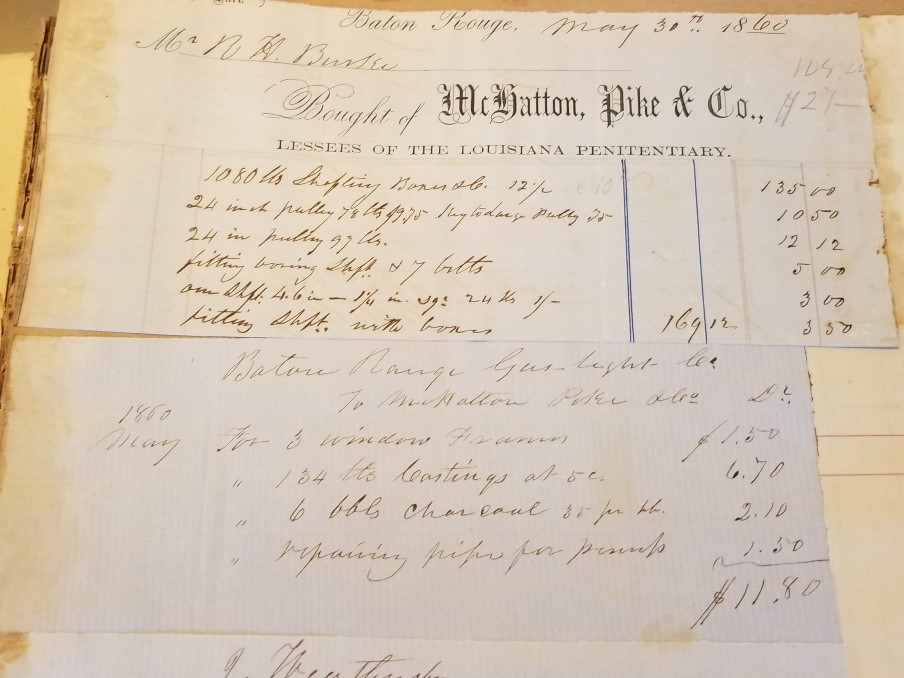 Baton Rouge, May 30th 1860
Mr N H. Burke
Bought of McHatton, Pike & Co.,
LESSEES OF THE LOUISIANA PENITENTIARY.
1080 lbs Shafting Boxes &c. 12½ 135 00
24 inch pulley 78 lbs 10 50
24 in pulley 97 lbs. 12 12
fitting boring Shft. & 7 bolts 5 00
one Shft. 4.6 in — 1¼ in. sqr 24 lbs 1/- 3 00
fitting Shft. with boxes 169 12 3 50
Baton Rouge Gas-Light Co
To McHatton Pike & Co Dr.
1860
May For 3 window Frames $1.50
" 134 lbs Castings at 5c. 6.70
" 6 bbls charcoal 35 pr bb. 2.10
" repairing pipe for pump 1.50
$11.80